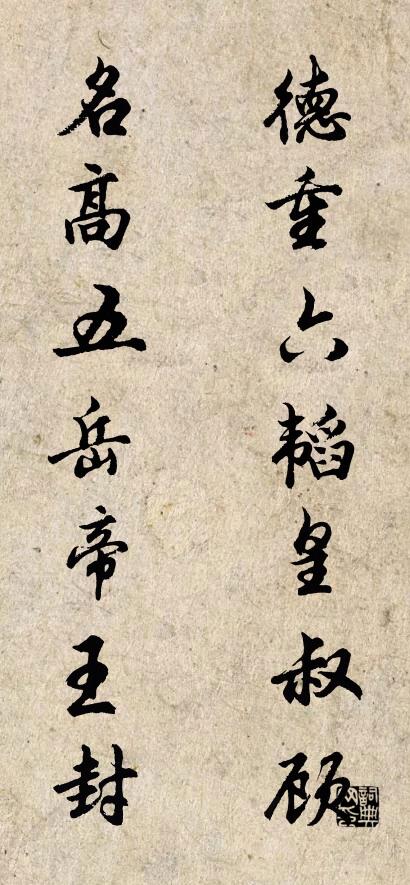 德重六韬皇叔顾
名高五岳帝王封